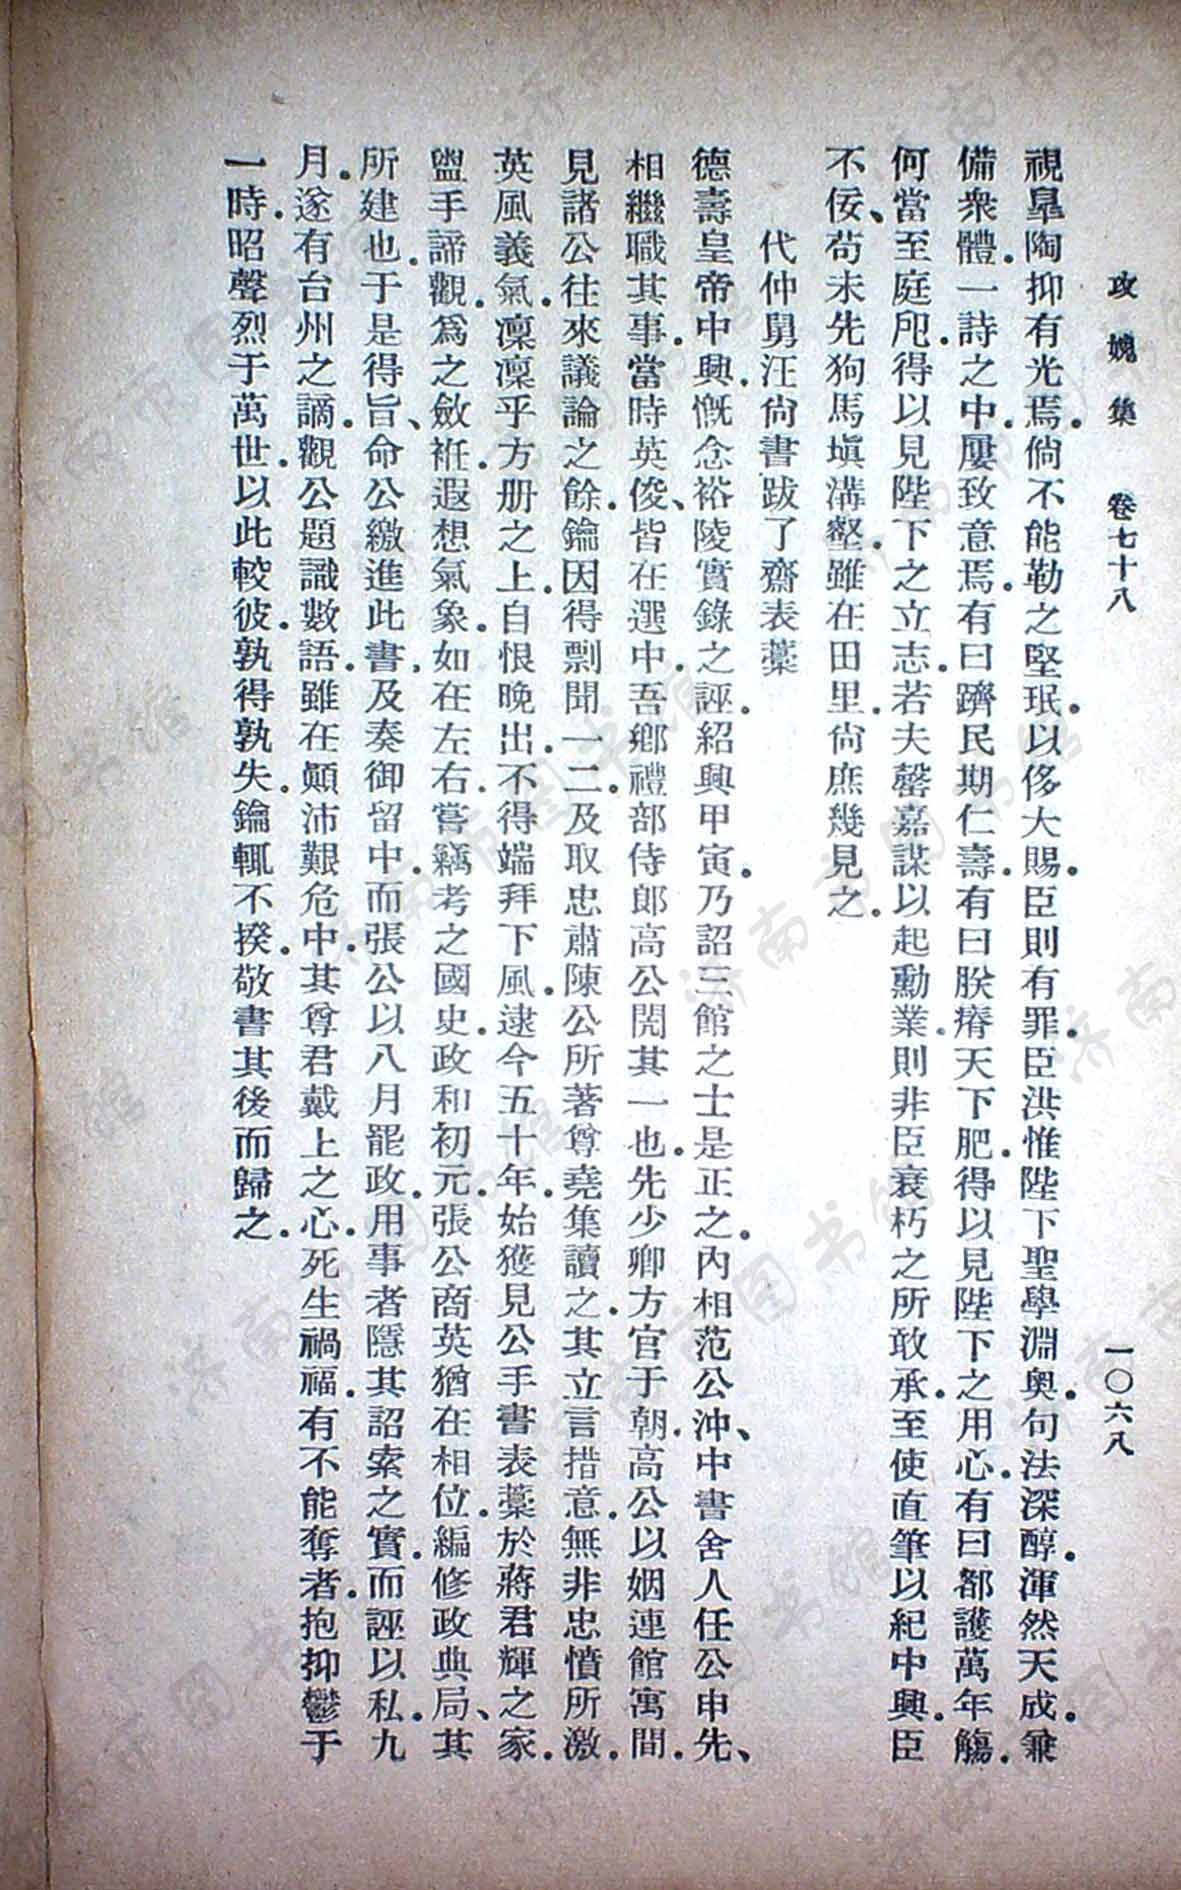 攻媿集 卷七十八 一〇六八
視臯陶抑有光焉。倘不能勒之堅珉。以侈大賜。臣則有罪。臣洪惟陛下聖學淵奧。句法深醇。渾然天成。兼
備衆體。一詩之中。屢致意焉。有曰躋民期仁壽。有曰朕瘠天下肥。得以見陛下之用心。有曰都護萬年觴。
何當至庭戺。得以見陛下之立志。若夫罄嘉謀以起勳業。則非臣衰朽之所敢承。至使直筆以紀中興。臣
不佞、苟未先狗馬塡溝壑。雖在田里。尙庶幾見之。
代仲舅汪尙書跋了齋表藁
德壽皇帝中興。慨念裕陵實錄之誣。紹興甲寅。乃詔三館之士是正之。內相范公沖、中書舍人任公申先、
相繼職其事。當時英俊、皆在選中。吾鄉禮部侍郎高公閌其一也。先少卿方官于朝。高公以姻連館寓間。
見諸公往來議論之餘。鑰因得剽聞一二。及取忠肅陳公所著尊堯集讀之。其立言措意。無非忠憤所激。
英風義氣。凜凜乎方册之上。自恨晚出。不得端拜下風。逮今五十年。始獲見公手書表藁於蔣君輝之家。
盥手諦觀。爲之斂袵。遐想氣象。如在左右。嘗竊考之國史。政和初元。張公商英猶在相位。編修政典局、其
所建也。于是得旨、命公繳進此書。及奏御留中。而張公以八月罷政。用事者隱其詔索之實。而誣以私。九
月。遂有台州之謫。觀公題識數語。雖在顚沛艱危中。其尊君戴上之心。死生禍福。有不能奪者。抱抑鬱于
一時。昭聲烈于萬世。以此較彼。孰得孰失。鑰輒不揆。敬書其後而歸之。